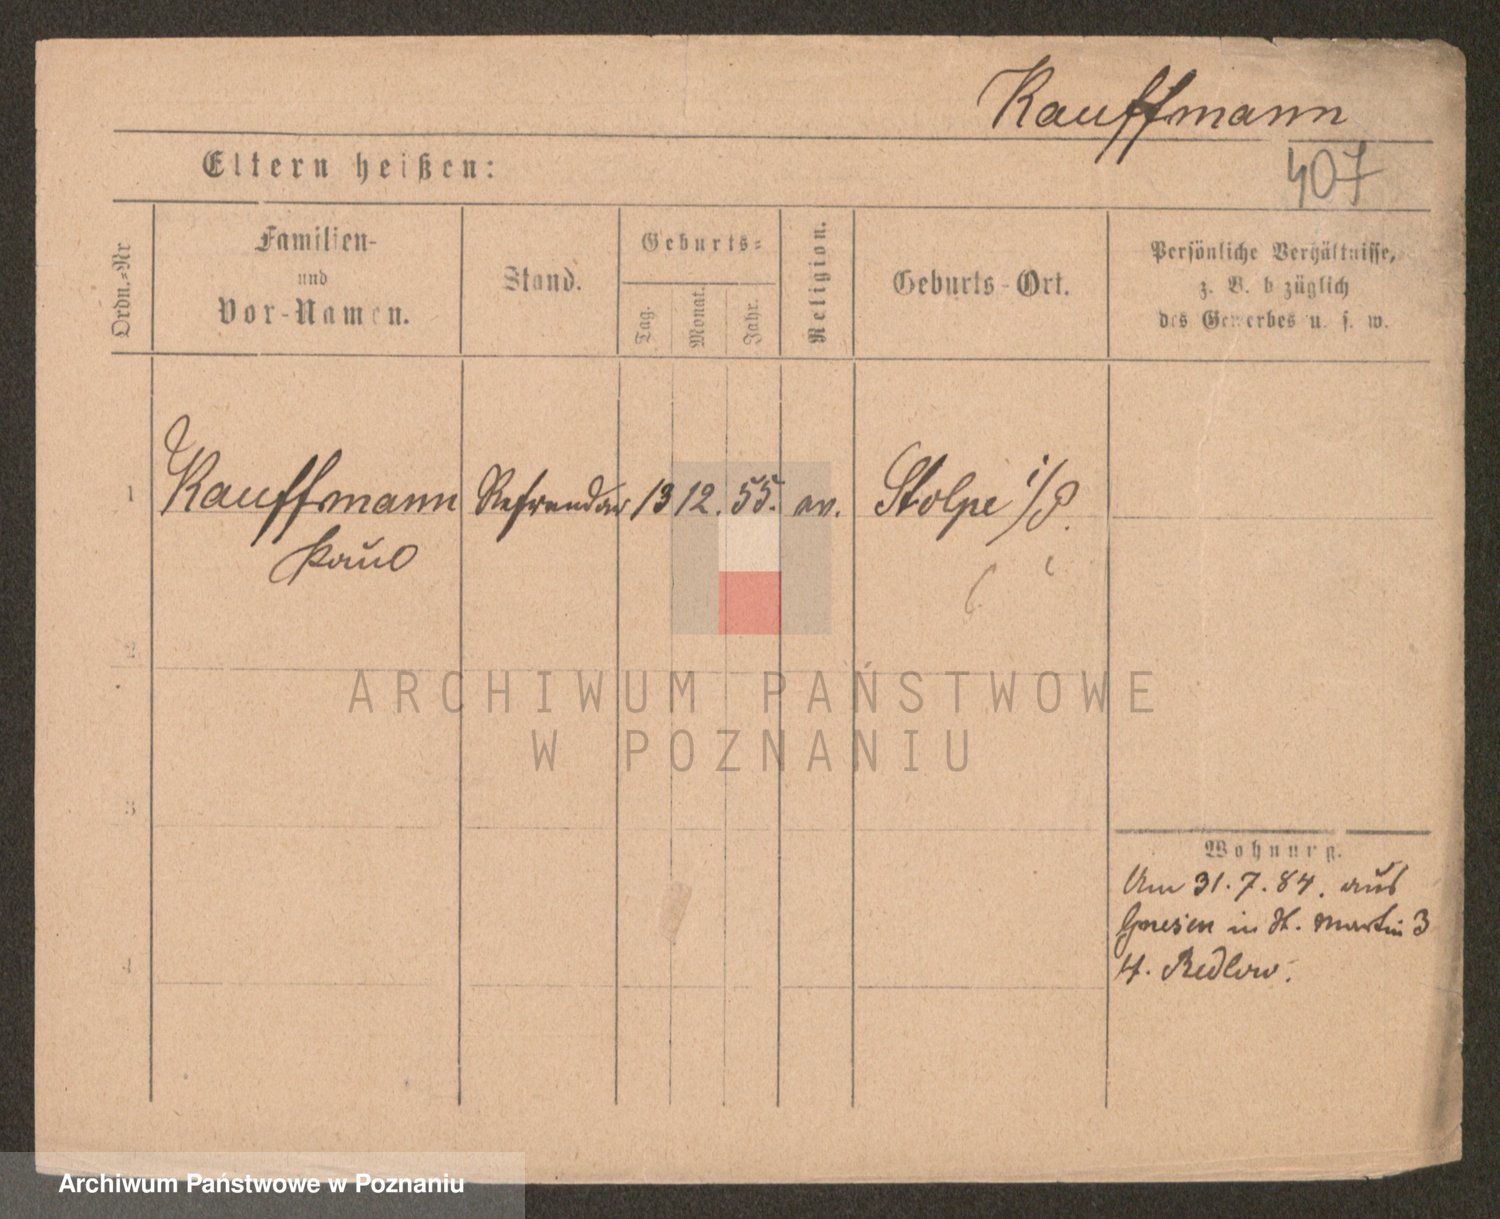 Kauffmann
407
Eltern heißen:
Ordn.-Nr
Familien-
und
Vor-Namen.
Stand.
Geburts-
Tag.
Monat.
Jahr.
Religion.
Geburts-Ort.
Persönliche Verhältnisse,
z. B. bezüglich
des Gewerbes u. s. w.
1 Kauffmann Referendar 13 12. 55. ev. Stolpe i/P.
Paul
2
3
4
Wohnung.
Am 31.7.84. aus
Gnesen in St. Martin 3
b. Redlow.
ARCHIWUM PAŃSTWOWE
W POZNANIU
Archiwum Państwowe w Poznaniu